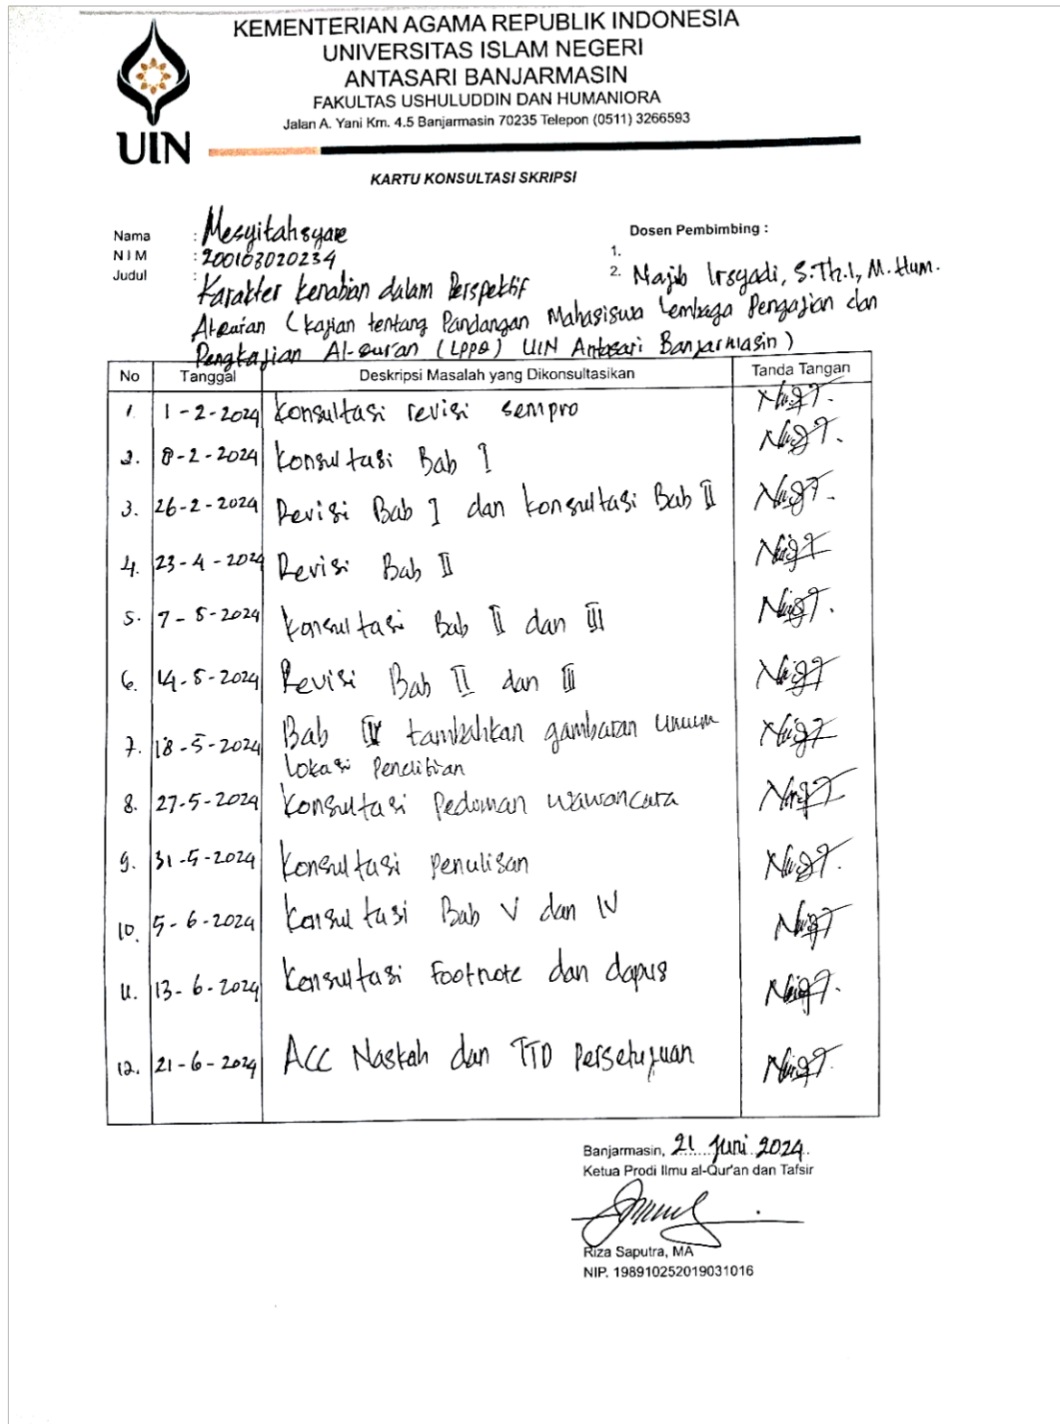 KEMENTERIAN AGAMA REPUBLIK INDONESIA
UNIVERSITAS ISLAM NEGERI
ANTASARI BANJARMASIN
FAKULTAS USHULUDDIN DAN HUMANIORA
Jalan A. Yani Km. 4.5 Banjarmasin 70235 Telepon (0511) 3266593
UIN
KARTU KONSULTASI SKRIPSI
Nama : Mesyitahsyare
Dosen Pembimbing :
NIM : 200103020234
1.
2. Najib Irsyadi, S.Th.I, M.Hum.
Judul : Karakter kenabian dalam Perspektif
Al-Quran (kajian tentang Pandangan Mahasiswa Lembaga Pengajian dan
Pengkajian Al-Qur'an (LPPQ) UIN Antasari Banjarmasin)
No Tanggal Deskripsi Masalah yang Dikonsultasikan Tanda Tangan
1. 1-2-2024 Konsultasi revisi sempro
2. 8-2-2024 Konsultasi Bab I
3. 26-2-2024 Revisi Bab I dan konsultasi Bab II
4. 23-4-2024 Revisi Bab II
5. 7-5-2024 Konsultasi Bab II dan III
6. 14-5-2024 Revisi Bab II dan III
7. 18-5-2024 Bab IV tambahkan gambaran umum
lokasi Penelitian
8. 27-5-2024 Konsultasi Pedoman wawancara
9. 31-5-2024 Konsultasi Penulisan
10. 5-6-2024 Konsultasi Bab V dan IV
11. 13-6-2024 Konsultasi Footnote dan dapus
12. 21-6-2024 ACC Naskah dan TTD Persetujuan
Banjarmasin, 21 Juni 2024
Ketua Prodi Ilmu al-Qur'an dan Tafsir
Riza Saputra, MA
NIP. 198910252019031016